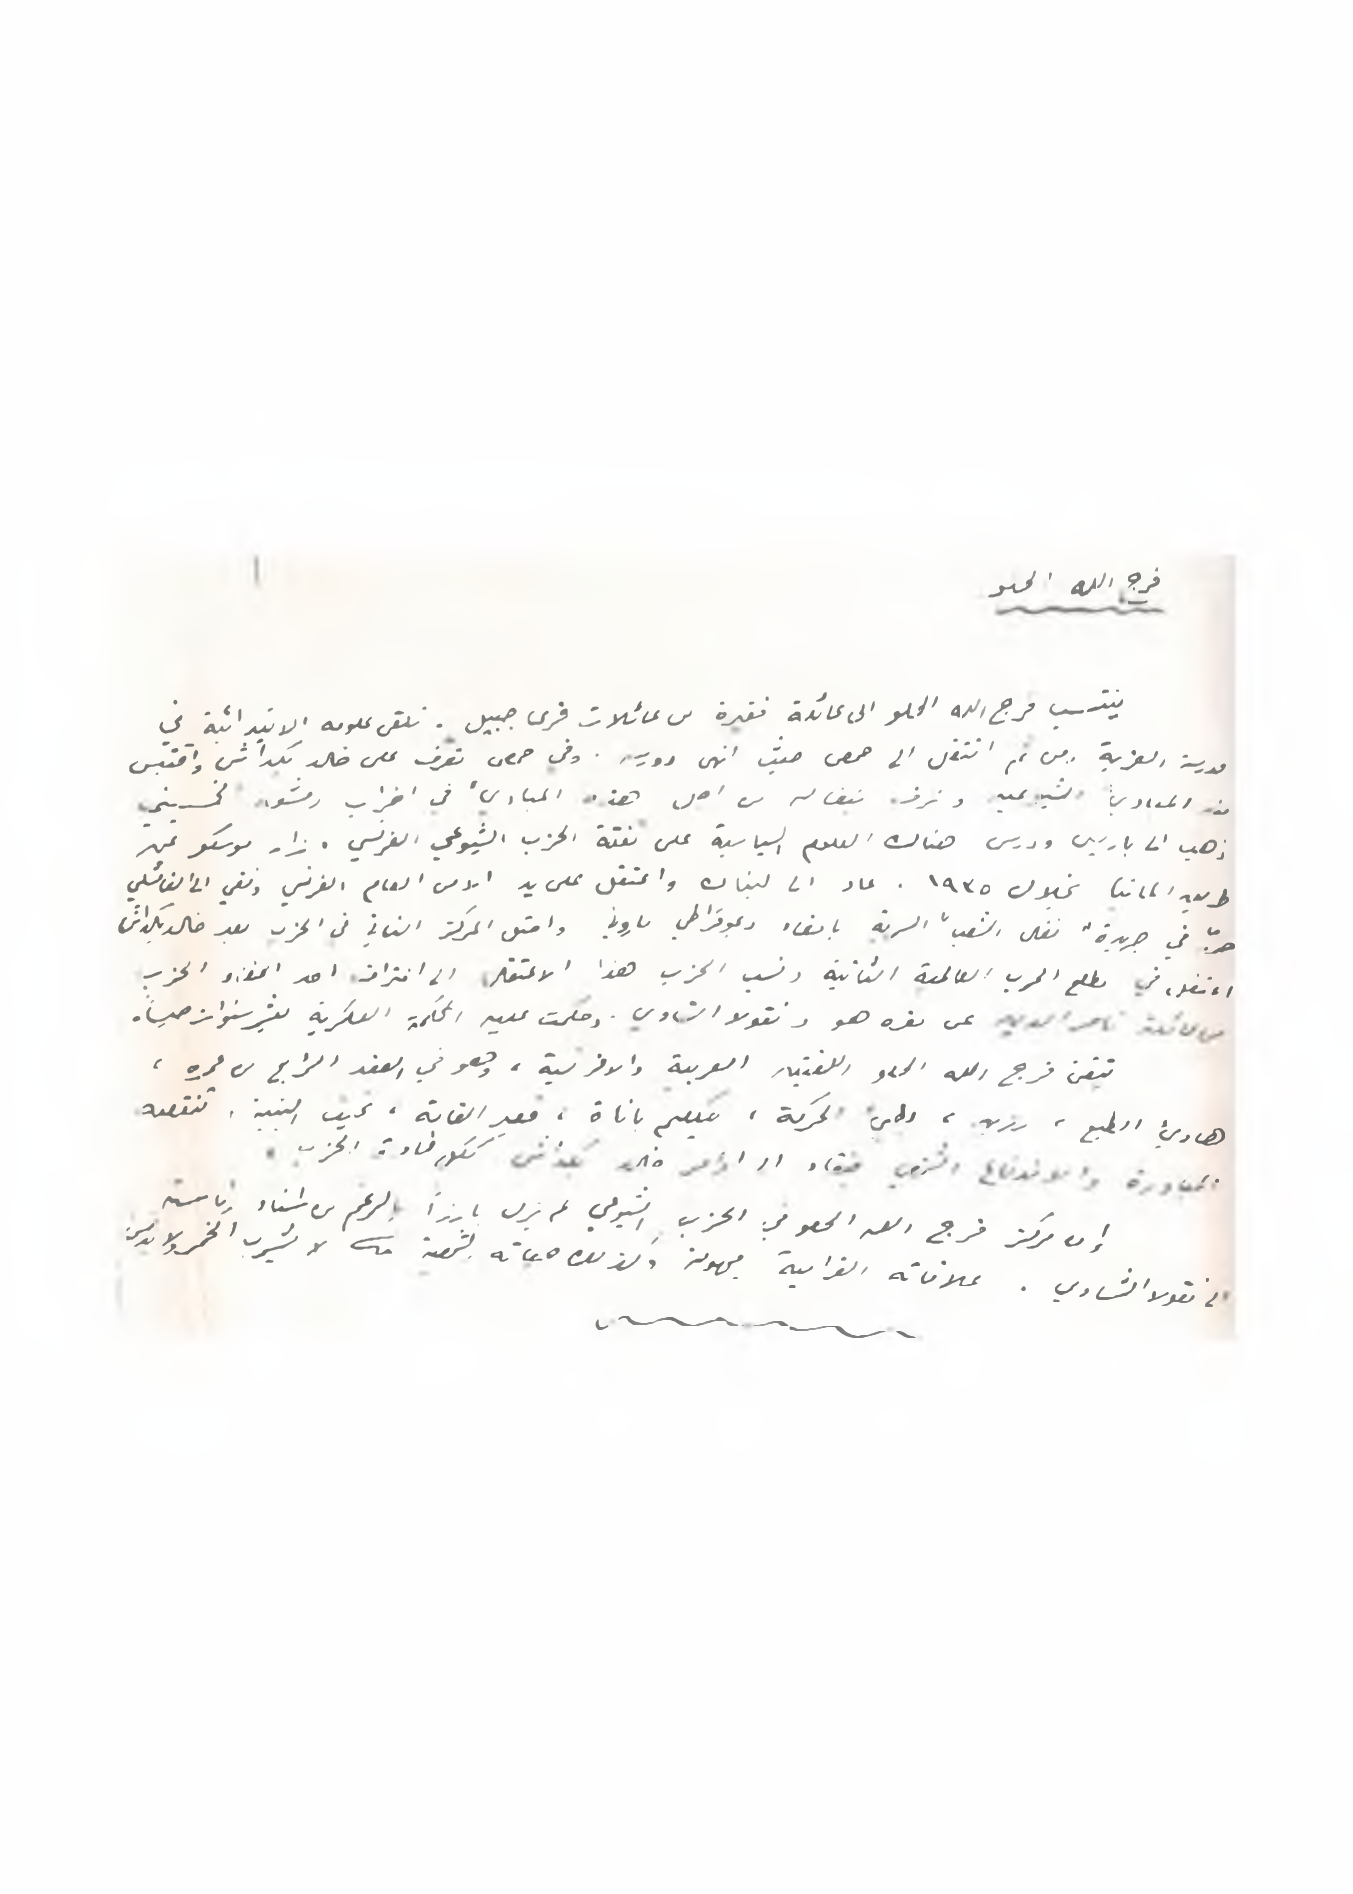 فرج الله الحلو
ينتسب فرج الله الحلو الى عائلة فقيرة من عائلات قرى جبيل . تلقى علومه الابتدائية في
مدرسة العزية ومن ثم انتقل الى حمص حيث انهى دروسه . وفي حمص تعرف على خالد بكداش واقتبس
منه المبادئ الشيوعية وعرف بنضاله من اجل هذه المبادئ في اضراب دمشق الخمسيني
ذهب الى باريس ودرس هناك العلوم السياسية على نفقة الحزب الشيوعي الفرنسي ، زار موسكو عن
طريق المانيا خلال ١٩٣٥ . عاد الى لبنان واعتقل على يد الامن العام الفرنسي ونفي الى
في جريدة " نضال الشعب " السرية بامضاء ديموقراطي ماروني واحتل المركز الثاني في الحزب بعد خالد بكداش
اعتقل في مطلع الحرب العالمية الثانية ونسب الحزب هذا الاعتقال الى اعتراف احد اعضاء الحزب
من عائلة ناصر الدين هو ونقولا الشاوي . وحكمت عليه المحكمة العسكرية بعشر سنوات
يتقن فرج الله الحلو اللغتين العربية والافرنسية ، وهو في العقد الرابع من عمره ،
هادئ الطبع ، رزين ، بطيء الحركة ، يتكلم باناة ، قصير القامة ، نحيف البنية ، تنقصه
المبادرة والاندفاع ينقاد الى اوامر خالد بكداش ككل قادة الحزب .
إن مركز فرج الله الحلو في الحزب الشيوعي لم يزل بارزاً بالرغم من اسناد رئاسته
الى نقولا الشاوي . علاقاته الغرامية مجهولة وكذلك حياته لا يشرب الخمر ولا يدخن